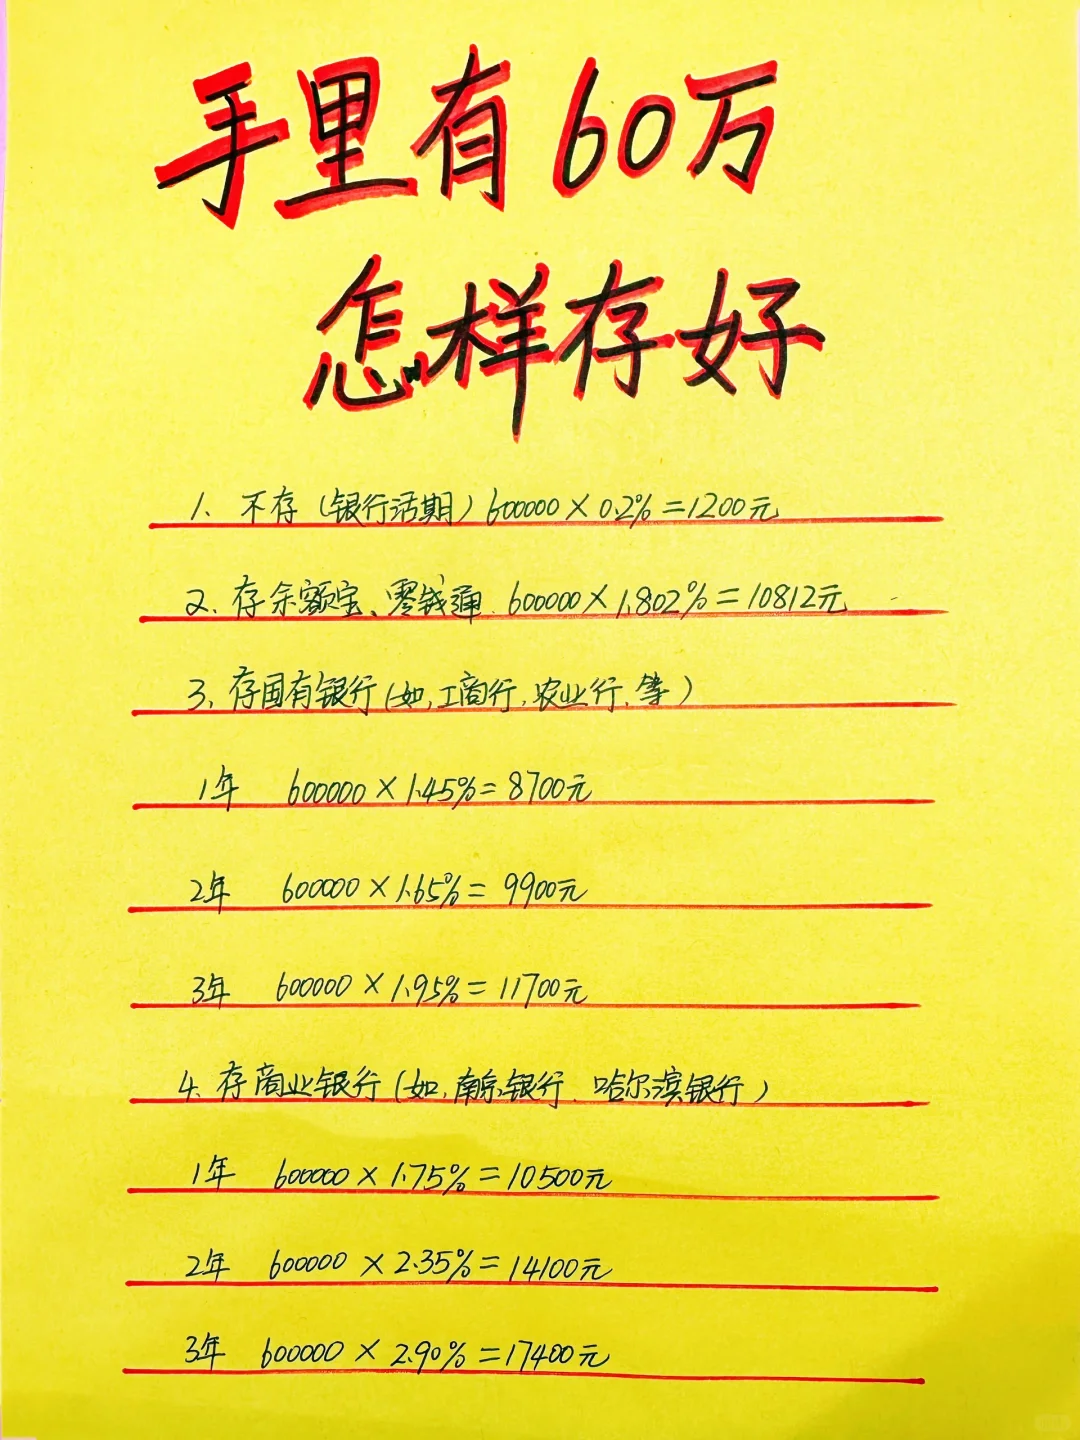 手里有60万
怎样存好
1、不存（银行活期）600000×0.2%=1200元
2、存余额宝、零钱通、600000×1.802%=10812元
3、存国有银行(如,工商行,农业行、等）
1年 600000×1.45%=8700元
2年 600000×1.65%=9900元
3年 600000×1.95%=11700元
4、存商业银行(如,南京银行、哈尔滨银行）
1年 600000×1.75%=10500元
2年 600000×2.35%=14100元
3年 600000×2.90%=17400元